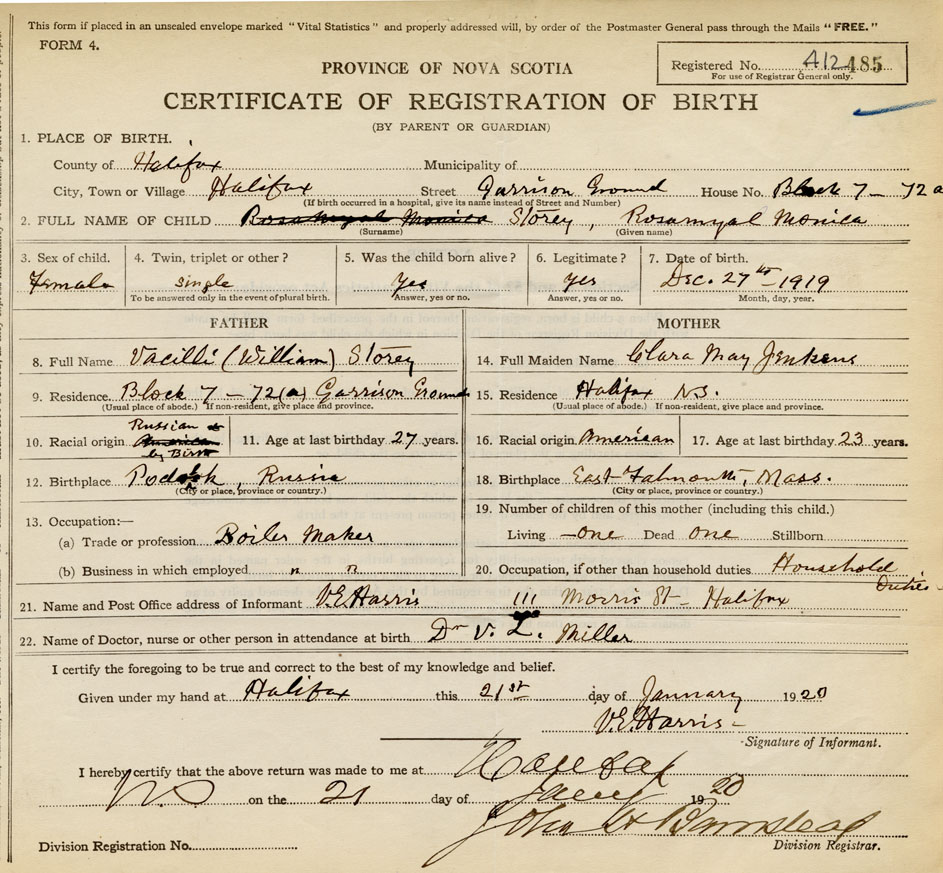 This form if placed in an unsealed envelope marked "Vital Statistics" and properly addressed will, by order of the Postmaster General pass through the Mails "FREE."
FORM 4.
Registered No. A12485
For use of Registrar General only.
PROVINCE OF NOVA SCOTIA
CERTIFICATE OF REGISTRATION OF BIRTH
(BY PARENT OR GUARDIAN)
1. PLACE OF BIRTH.
County of Halifax Municipality of
City, Town or Village Halifax Street Garrison Ground House No. Block 7 - 72 a
(If birth occurred in a hospital, give its name instead of Street and Number)
2. FULL NAME OF CHILD Rosamyal Monica Storey, Rosamyal Monica
(Surname) (Given name)
3. Sex of child. 4. Twin, triplet or other? 5. Was the child born alive? 6. Legitimate? 7. Date of birth.
Female single Yes Yes Dec. 27th - 1919
To be answered only in the event of plural birth. Answer, yes or no. Answer, yes or no. Month, day, year.
FATHER
8. Full Name Vacilli (William) Storey
9. Residence. Block 7 - 72(a) Garrison Ground
(Usual place of abode.) If non-resident, give place and province.
10. Racial origin Russian American by Birth 11. Age at last birthday 27 years.
12. Birthplace Podolsk, Russia
(City or place, province or country.)
13. Occupation:—
(a) Trade or profession. Boiler Maker
(b) Business in which employed. " "
MOTHER
14. Full Maiden Name Clara May Jenkens
15. Residence Halifax N.S.
(Usual place of abode.) If non-resident, give place and province.
16. Racial origin American 17. Age at last birthday 23 years.
18. Birthplace East Falmouth, Mass.
(City or place, province or country.)
19. Number of children of this mother (including this child.)
Living - one Dead one Stillborn
20. Occupation, if other than household duties. Household Duties
21. Name and Post Office address of Informant V.E. Harris 111 Morris St - Halifax
22. Name of Doctor, nurse or other person in attendance at birth Dr V. L. Miller
I certify the foregoing to be true and correct to the best of my knowledge and belief.
Given under my hand at Halifax this 21st day of January 1920
V.E. Harris -
Signature of Informant.
I hereby certify that the above return was made to me at Halifax
NS on the 21 day of Jany 1920
John H Barnstead
Division Registration No. Division Registrar.